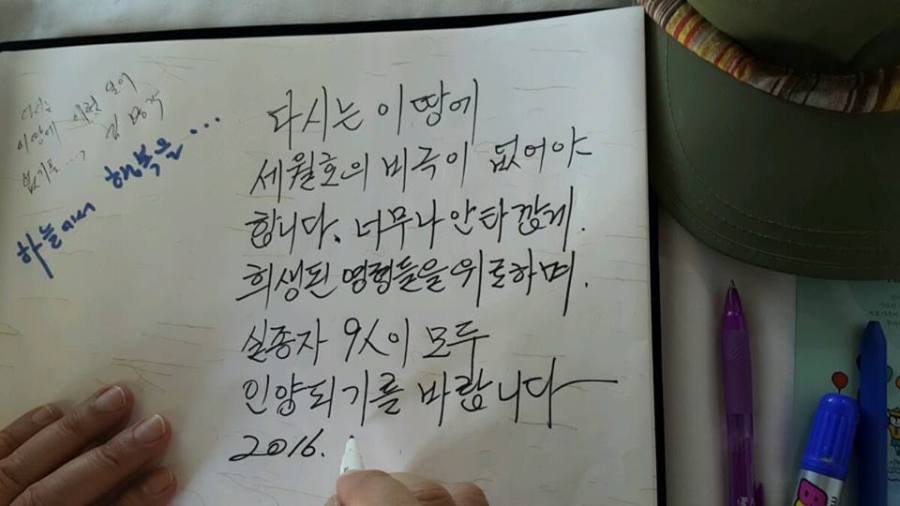 다시는 이 땅에
세월호의 비극이 없어야
합니다. 너무나 안타깝게
희생된 영령들을 위로하며.
실종자 9人이 모두
인양되기를 바랍니다
2016.
이땅에 이런 일이
없기를...
하늘에서 행복을...